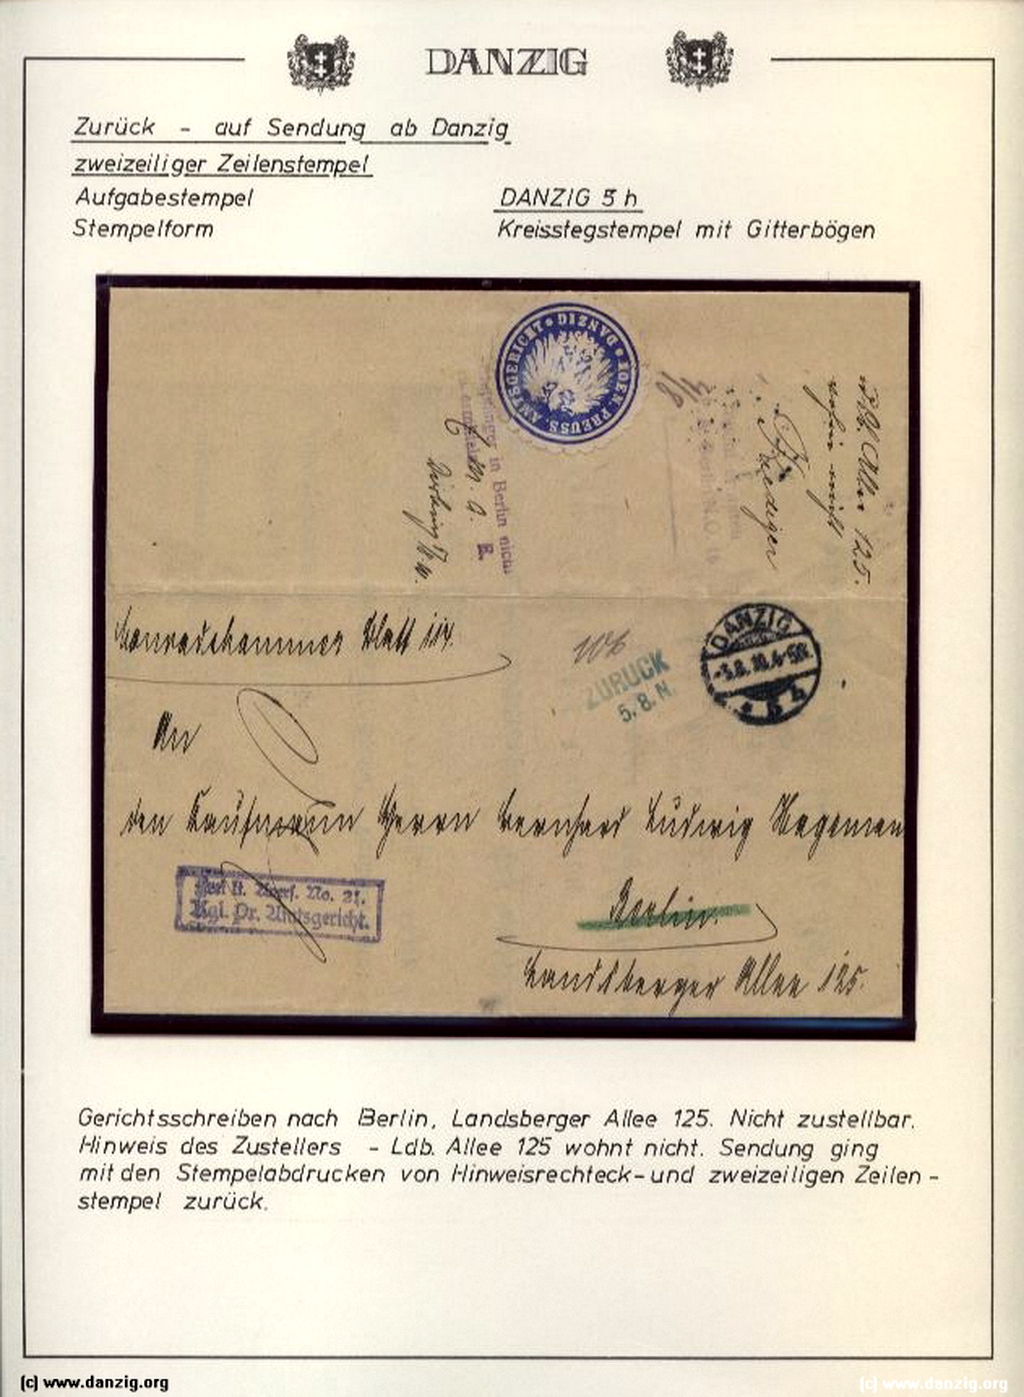 DANZIG
Zurück - auf Sendung ab Danzig
zweizeiliger Zeilenstempel
Aufgabestempel DANZIG 5 h
Stempelform Kreisstegstempel mit Gitterbögen
KOEN. PREUSS. AMTSGERICHT * DANZIG *
in Berlin nicht
125.
Conradshammer Blatt 114.
ZURÜCK
5. 8. N.
DANZIG
An
den Kaufmann Herrn Bernhard Ludwig Hagemann
No. 21.
Kgl. Pr. Amtsgericht.
Berlin.
Landsberger Allee 125.
Gerichtsschreiben nach Berlin, Landsberger Allee 125. Nicht zustellbar.
Hinweis des Zustellers - Ldb. Allee 125 wohnt nicht. Sendung ging
mit den Stempelabdrucken von Hinweisrechteck- und zweizeiligen Zeilen-
stempel zurück.
(c) www.danzig.org (c) www.danzig.org